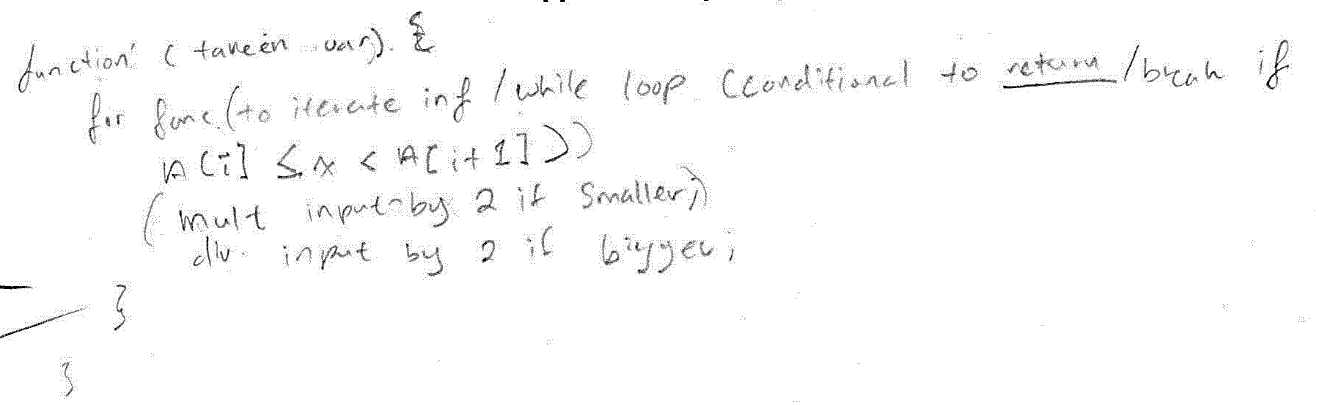 function (taken var). {
for func. (to iterate inf / while loop (conditional to return / break if
A[i] ≤ x < A[i+1]))
(mult input by 2 if smaller;)
div. input by 2 if bigger;
}
}